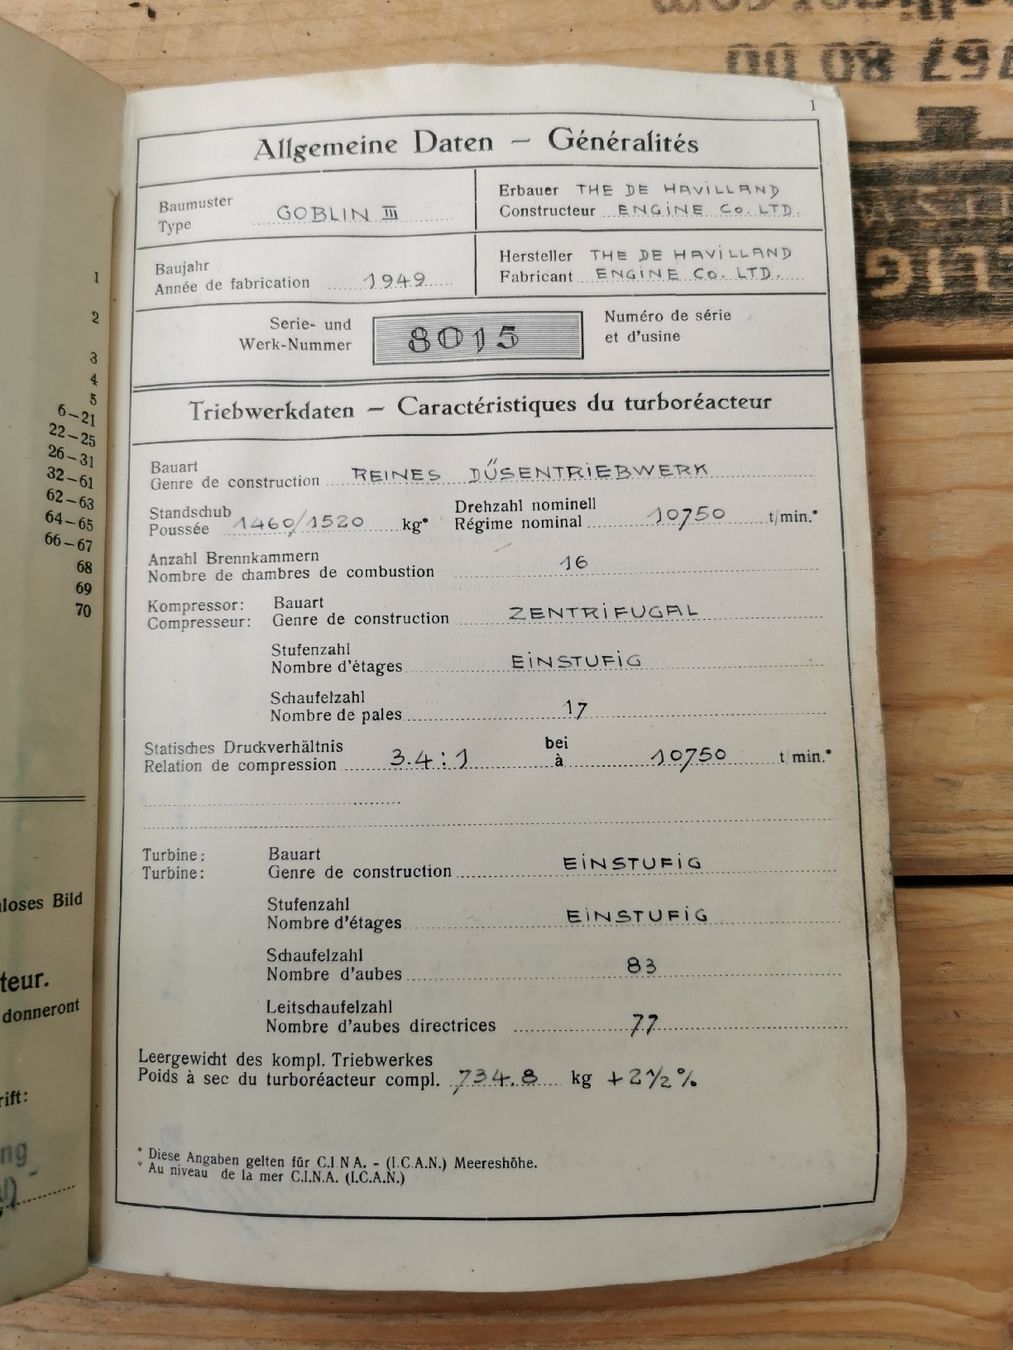 767 80 00
1
Allgemeine Daten — Généralités
Baumuster
Type GOBLIN III
Erbauer THE DE HAVILLAND
Constructeur ENGINE Co. LTD.
Baujahr
Année de fabrication 1949
Hersteller THE DE HAVILLAND
Fabricant ENGINE Co. LTD.
Serie- und
Werk-Nummer
8015
Numéro de série
et d'usine
Triebwerkdaten — Caractéristiques du turboréacteur
Bauart
Genre de construction REINES DÜSENTRIEBWERK
Standschub
Poussée 1460/1520 kg*
Drehzahl nominell
Régime nominal 10750 t/min.*
Anzahl Brennkammern
Nombre de chambres de combustion 16
Kompressor: Bauart
Compresseur: Genre de construction ZENTRIFUGAL
Stufenzahl
Nombre d'étages EINSTUFIG
Schaufelzahl
Nombre de pales 17
Statisches Druckverhältnis bei
Relation de compression 3.4:1 à 10750 t/min.*
Turbine: Bauart
Turbine: Genre de construction EINSTUFIG
Stufenzahl
Nombre d'étages EINSTUFIG
Schaufelzahl
Nombre d'aubes 83
Leitschaufelzahl
Nombre d'aubes directrices 77
Leergewicht des kompl. Triebwerkes
Poids à sec du turboréacteur compl. 734.8 kg + 2 1/2 %
* Diese Angaben gelten für C.I.N.A. - (I.C.A.N.) Meereshöhe.
* Au niveau de la mer C.I.N.A. (I.C.A.N.)
1
2
3
4
5
6—21
22—25
26—31
32—61
62—63
64—65
66—67
68
69
70
Bild
donneront